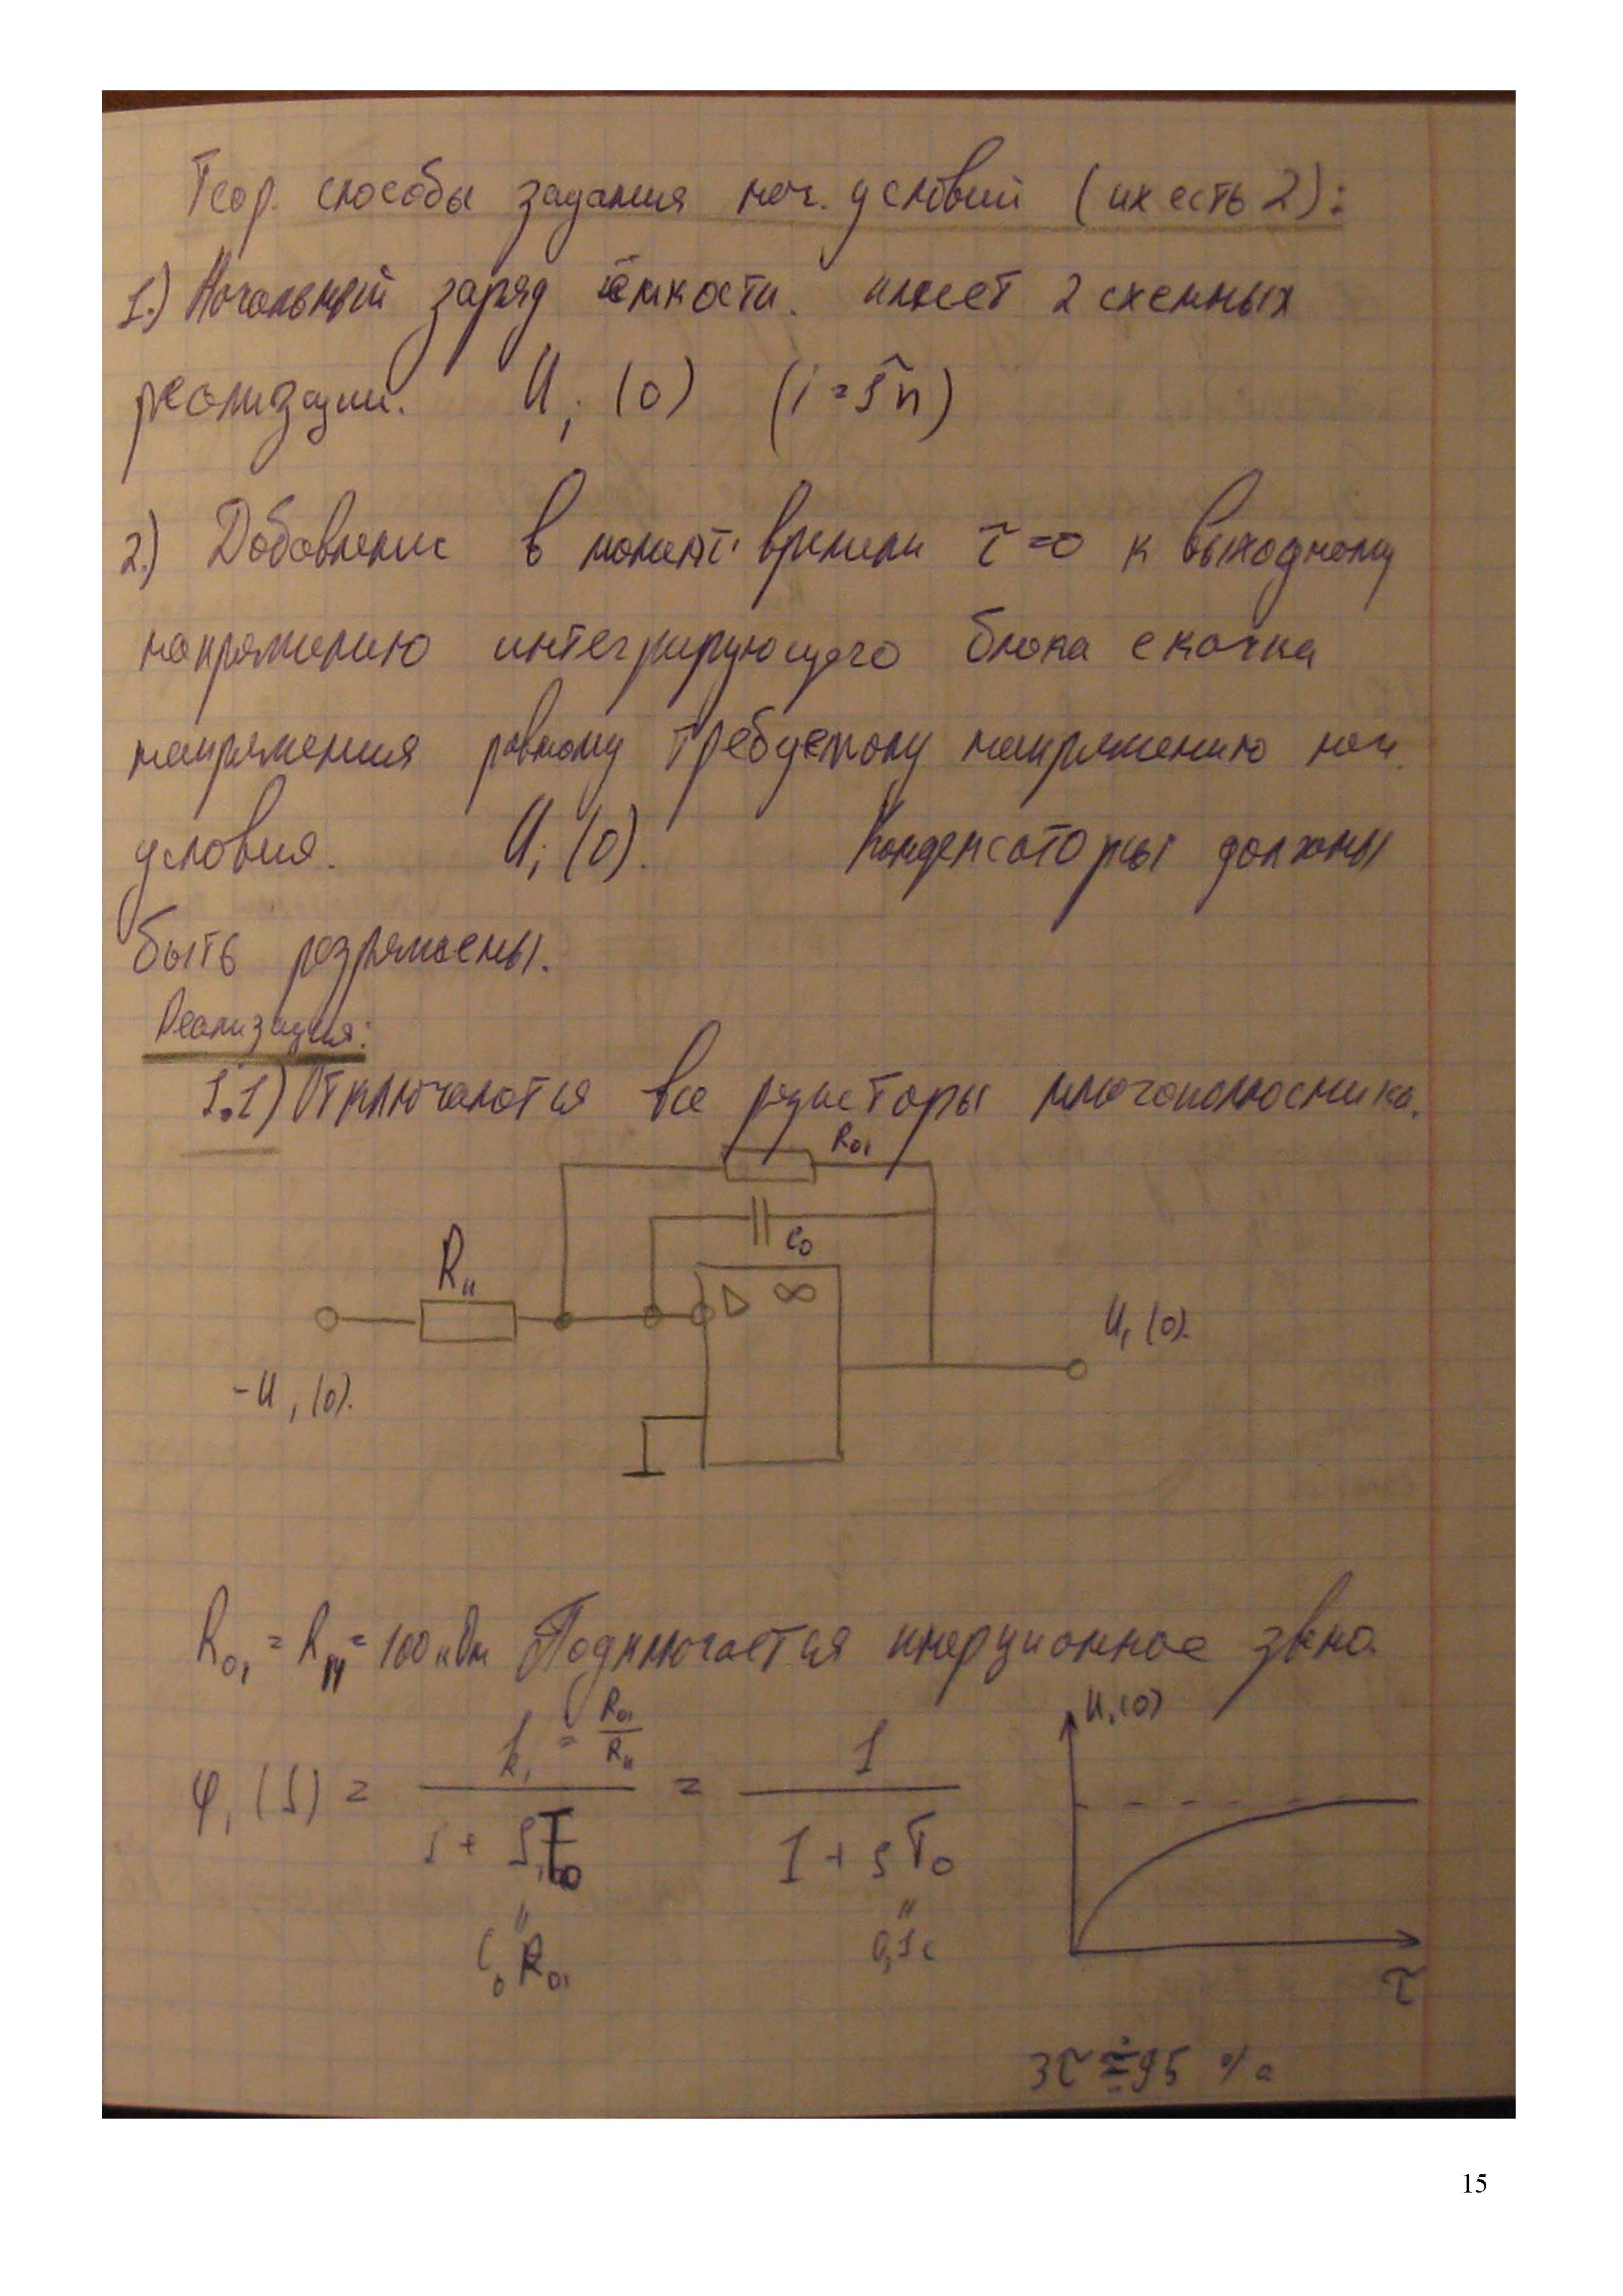 Теор. способы задания нач. условий (их есть 2):
1.) Начальный заряд ёмкости. имеет 2 схемных
реализации. U_i (0) (i = 1͡n)
2.) Добавление в момент времени τ=0 к выходному
напряжению интегрирующего блока скачка
напряжения равному требуемому напряжению нач.
условия. U_i (0). Конденсаторы должны
быть разряжены.
Реализация:
1.1) Отключаются все резисторы многополюсника.
R₀₁
C₀
R_н
▷ ∞
U₁ (0).
-U₁ (0).
R₀₁ = R_н = 100 кОм Подключается инерционное звено
U₁(0)
φ₁(S) = k₁ = R₀₁/R_н / 1 + S T₀ = 1 / 1 + S T₀
" "
C₀ R₀₁ 0,1с
τ
3τ ≅ 95 %
15